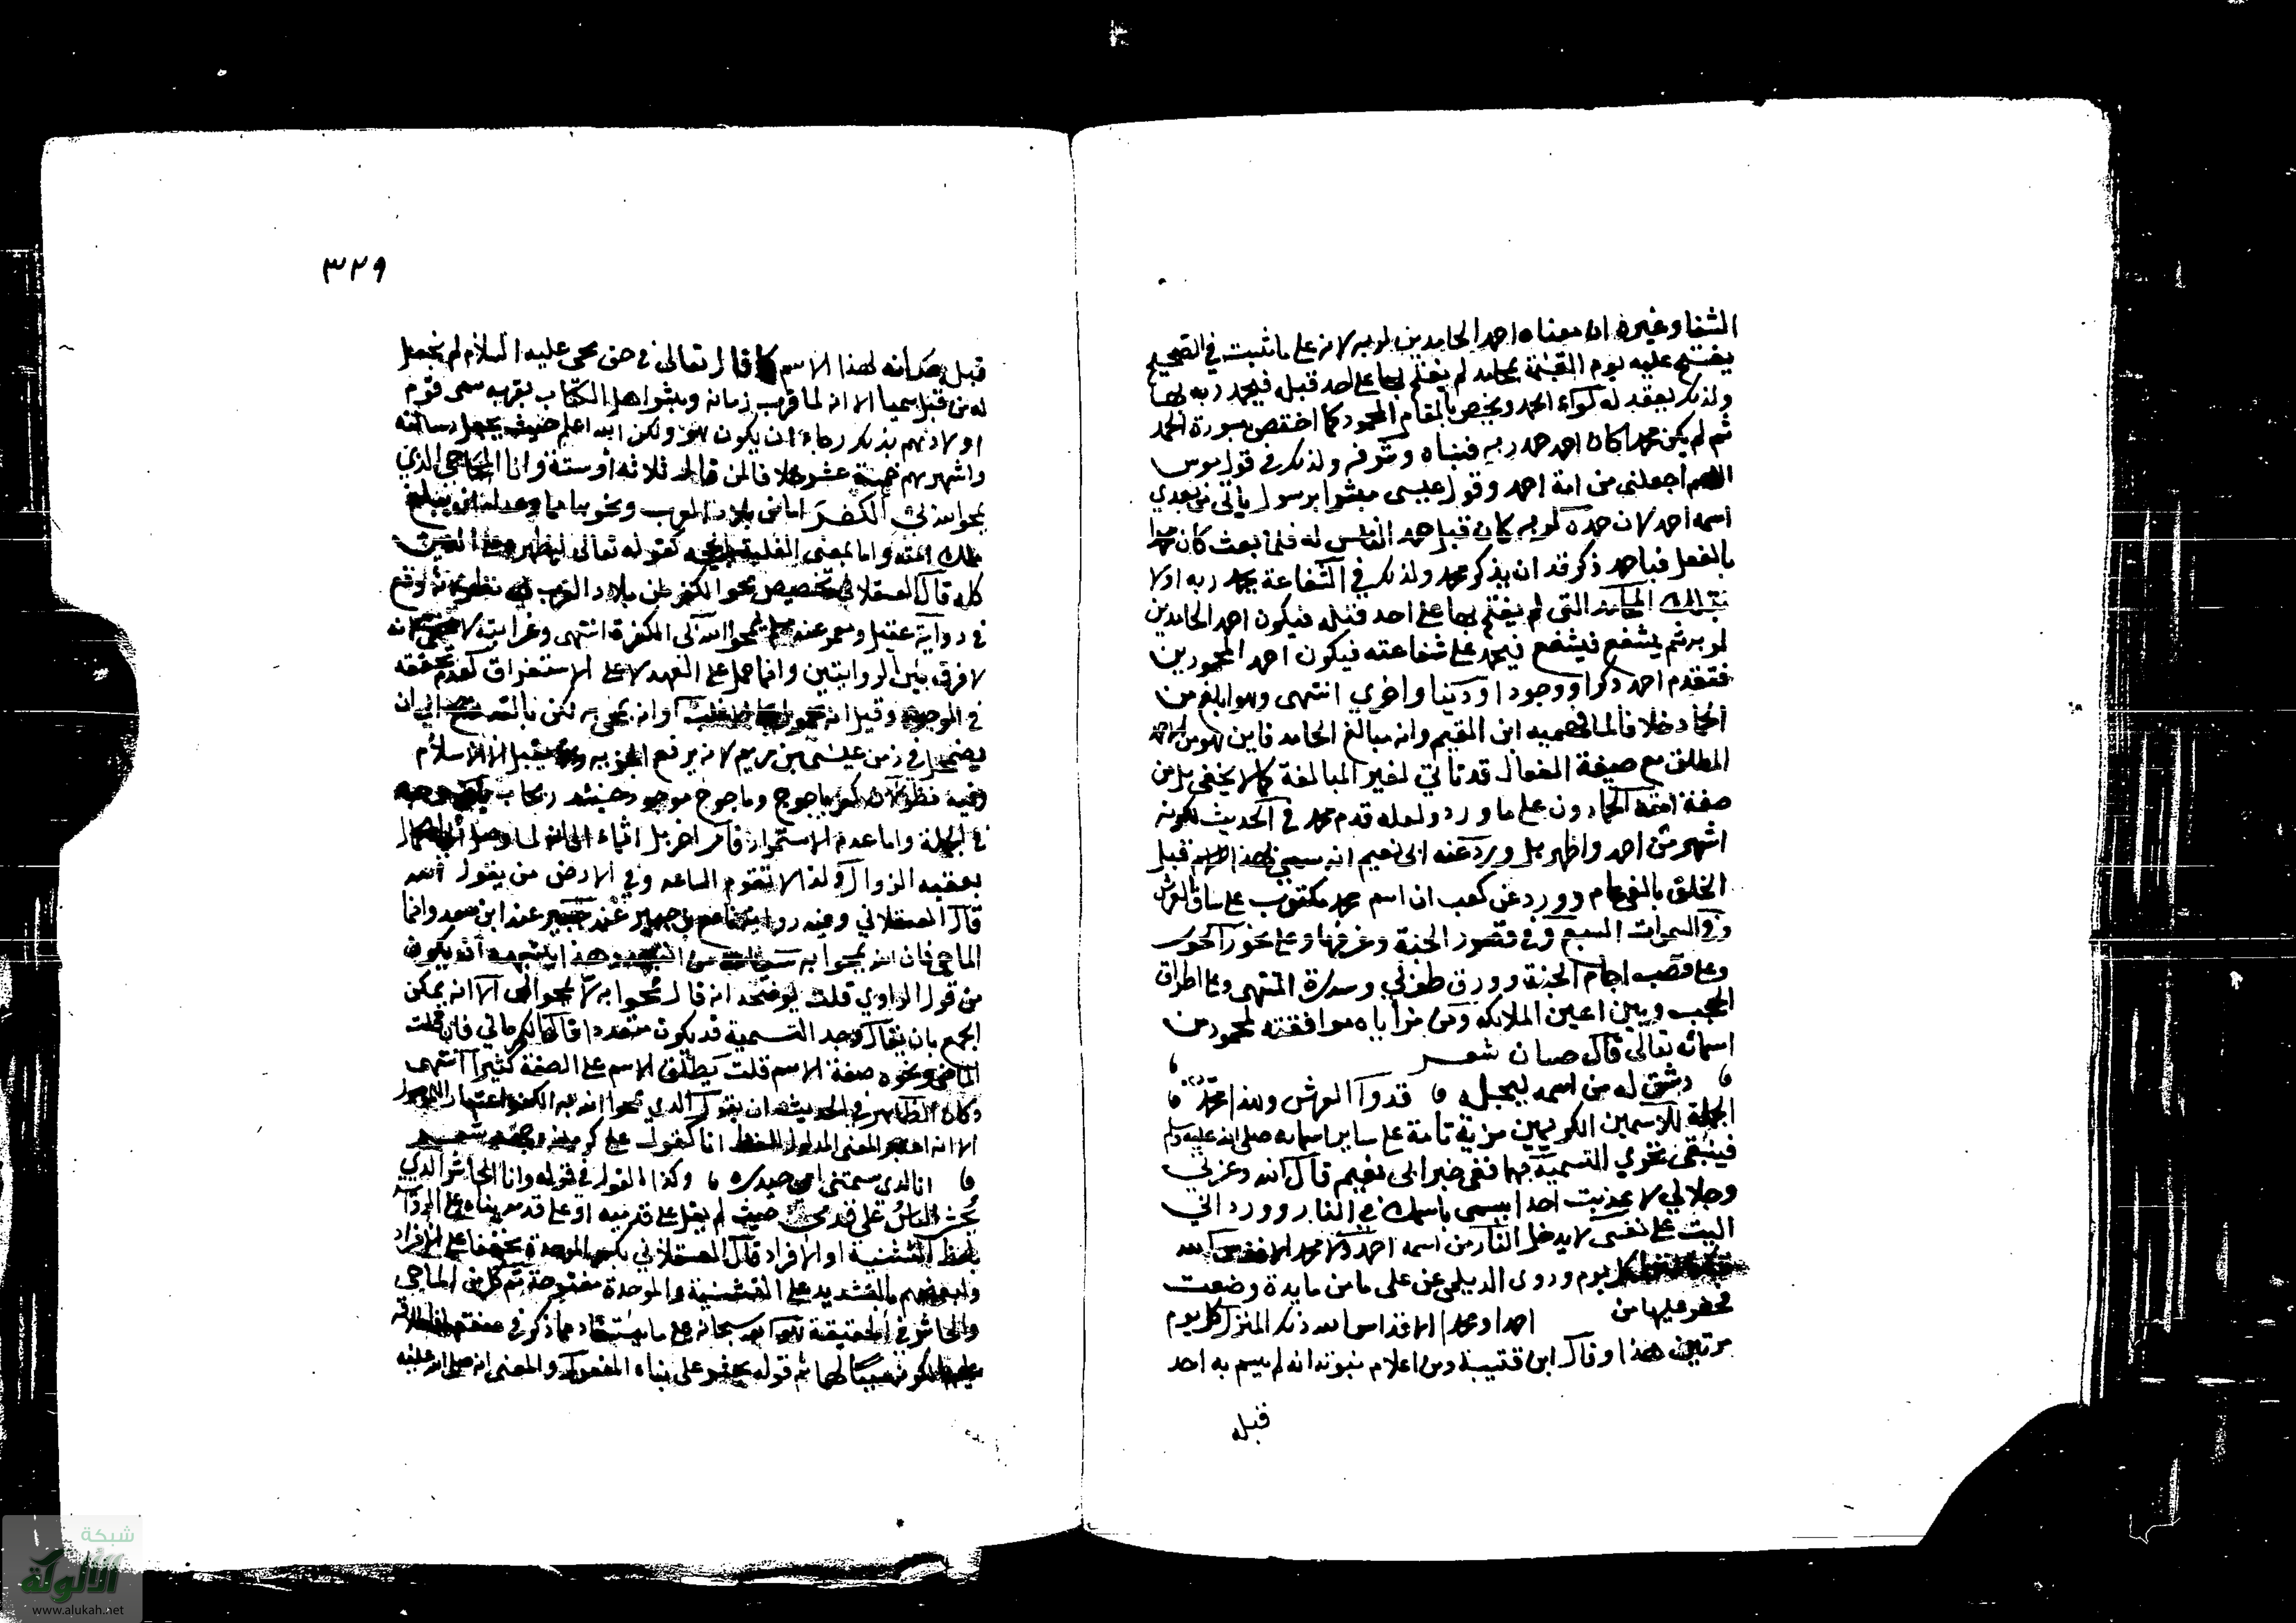 الشفا وغيره ان معناه احمد الحامدين لربه لانه على ما ثبت في الصحيح
يفتح عليه يوم القيمة بمحامد لم يفتح بها على احد قبل فيحمد ربه بها
ولذلك يعقد له لواء الحمد ويخص بالمقام المحمود كما اختص بسورة الحمد
ثم لم يكن محمدا كان احمد حمد ربه فنباه وشرفه ولذلك في قول موسى
اللهم اجعلني من امة احمد وقول عيسى مبشرا برسول ياتي من بعدي
اسمه احمد لان حمده لربه كان قبل حمد الناس له فلما بعث كان محمدا
بالفعل فباحمد ذكر قد ان يذكر محمد ولذلك في الشفاعة يحمد ربه اولا
بتلك المحامد التي لم يفتح بها على احد قبله فيكون احمد الحامدين
لربه ثم يشفع فيشفع فيحمد على شفاعته فيكون احمد المحمودين
فتقدم احمد ذكرا ووجودا ودنيا واخرى انتهى وهو ابلغ من
الحماد خلافا لما فهمه ابن القيم وانه مبالغ الحامد فاين هو من احمد
المطلق مع صيغة الفعال قد تاتي لغير المبالغة كما لا يخفى بل من
صفة امته الحمادون على ما ورد ولعله قدم محمد في الحديث لكونه
اشهر من احمد واظهر بل ورد عنه ابي نعيم انه سمي بهذا الاسم قبل
الخلق بالفي عام وورد عن كعب ان اسم محمد مكتوب على ساق العرش
وفي السموات السبع وفي قصور الجنة وغرفها وعلى نحور الحور
وعلى قصب اجام الجنة وورق طوبى وسدرة المنتهى وعلى اطراف
الحجب وبين اعين الملائكة ومن مزاياه موافقته لمحمود من
اسمائه تعالى قال حسان شعر
وشق له من اسمه ليجله فذو العرش محمود وهذا محمد
الجملة للاسمين الكريمين مزية تامة على ساير اسمائه صلى الله عليه وسلم
فينبغي تحري التسمية بهما ففي خبر ابي نعيم قال الله وعزتي
وجلالي لا عذبت احدا يسمى باسمك في النار وورد اني
اليت على نفسي لا يدخل النار من اسمه احمد ولا محمد
يوم وروى الديلمي عن علي ما من مايدة وضعت
فحضر عليها من احمد او محمد الا قدس الله ذلك المنزل كل يوم
مرتين هذا وقال ابن قتيبة ومن اعلام نبوته انه لم يسم به احد
قبله
٣٢٩
قبل صيانة لهذا الاسم كما قال تعالى في حق يحيى عليه السلام لم نجعل
له من قبل سميا الا انه لما قرب زمانه وبشر اهل الكتاب بقربه سمى قوم
اولادهم بذلك رجاء ان يكون هو ولكن الله اعلم حيث يجعل رسالته
واشهرهم خمسة عشر خلافا لمن قال ثلاثة او ستة وانا الماحي الذي
يمحو الله بي الكفر اما من بلاد العرب ونحوها مما وعد له ان يبلغ
ملك امته واما بمعنى الغلبة كقوله تعالى ليظهره على الدين
كله قال العسقلاني تخصيص محو الكفر من بلاد العرب فيه نظر لانه وقع
في رواية عقيل ومعمر عند مسلم يمحو الله بي الكفرة انتهى وغرابته لا تخفى لانه
لا فرق بين الروايتين وانما حمل على العهد لا على الاستغراق لعدم تحققه
في الوجود وقيل انه محمول على الاغلب او انه يمحى به لكن بالتدريج الى ان
يضمحل في زمن عيسى بن مريم لانه يرفع الجزية ولا يقبل الا الاسلام
وفيه نظر لان كفر ياجوج وماجوج موجود حينئذ ويجاب
في الجملة واما عدم الاستمرار فامر اخر بل ايماء الى انه لما وصل الى الكمال
يعقبه الزوال ولذا لا تقوم الساعة وفي الارض من يقول الله
قال العسقلاني وفي رواية نافع بن جبير عند ابن سعد وانا
الماحي فان الله يمحو به سيئات من اتبعه وهذا يشبه ان يكون
من قول الراوي قلت يوضحه انه قال يمحوا به لا يمحو بي الا انه يمكن
الجمع بان يقال وجه التسمية قد يكون متعددا قال الكرماني فان قلت
الماحي ونحوه صفة لا اسم قلت يطلق الاسم على الصفة كثيرا انتهى
وكان الظاهر في الحديث ان يقول الذي يمحوا الله به الكفر اعتبار الموصول
الا انه اعتبر المعنى المدلول للفظ انا كقول علي كرم الله وجهه شعر
انا الذي سمتني امي حيدره وكذا القول في قوله وانا الحاشر الذي
يحشر الناس على قدمي حيث لم يقل على قدميه او على قدمه بناء على الرواية
بلفظ التثنية او الافراد قال العسقلاني بكسر الموحدة مخففا على الافراد
ولبعضهم بالتشديد على التثنية والموحدة مفتوحة ثم كل من الماحي
والحاشر في الحقيقة هو الله سبحانه على ما يستفاد مما ذكر في صفتهما فاطلاقه
عليه لكونه سببا لهما ثم قوله يحشر على بناء المفعول والمعنى انه صلى الله عليه
شبكة
الألوكة
www.alukah.net